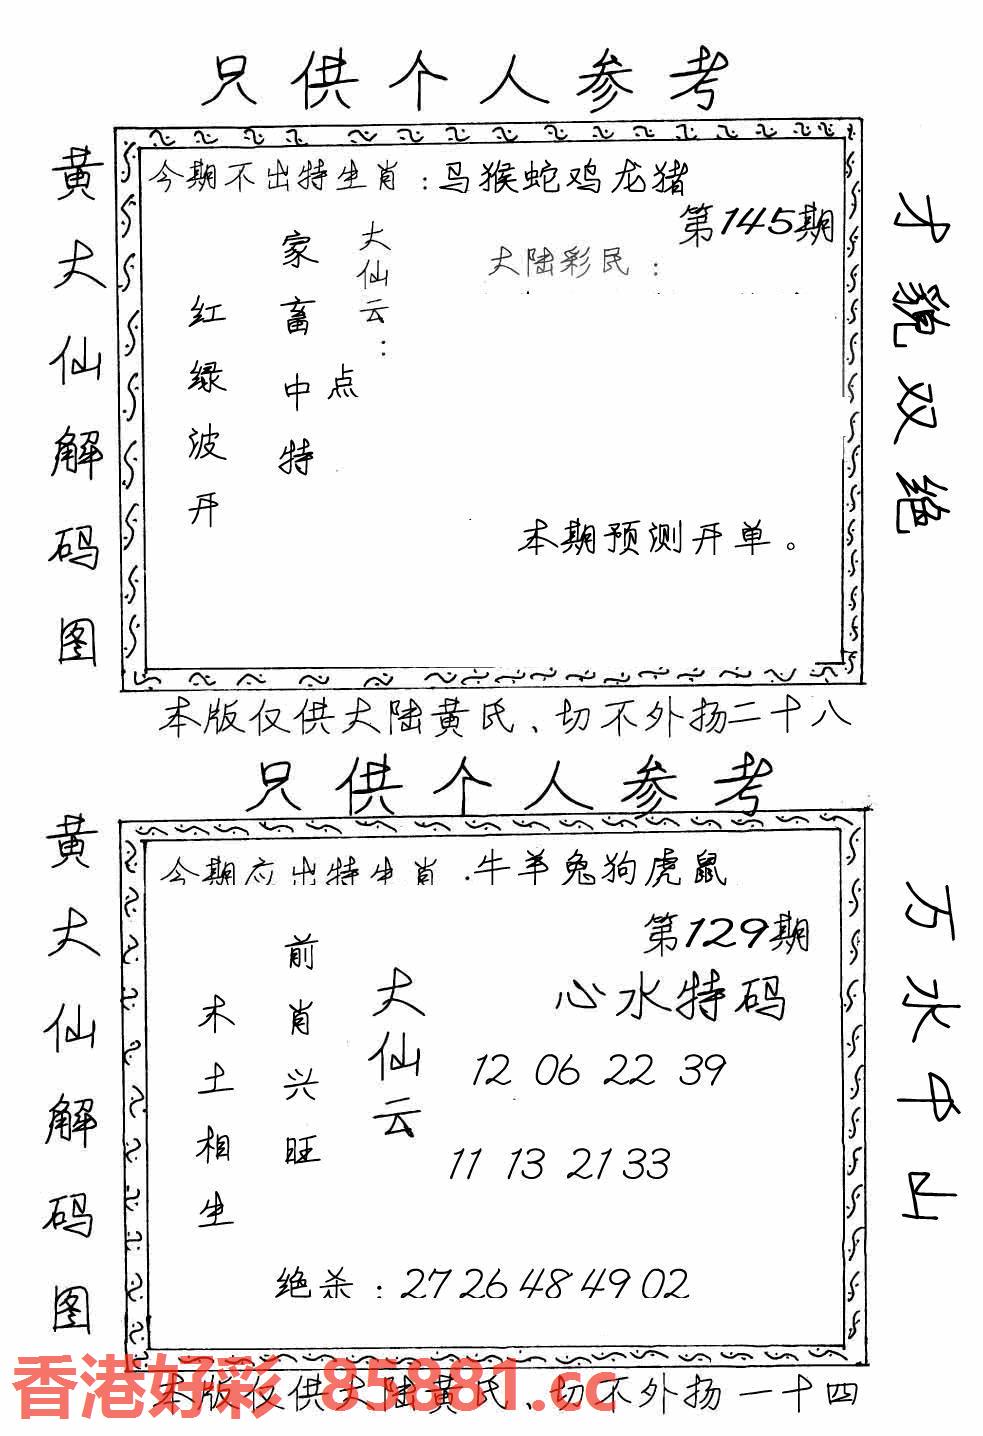 只供个人参考
黄大仙解码图
今期不出特生肖:马猴蛇鸡龙猪
第145期
大陆彩民:
大仙云:
点
家畜中特
红绿波开
本期预测开单。
才貌双绝
本版仅供大陆黄氏、切不外扬二十八
只供个人参考
黄大仙解码图
今期应出特生肖.牛羊兔狗虎鼠
第129期
心水特码
大仙云
前肖兴旺
木土相生
12 06 22 39
11 13 21 33
绝杀:27 26 48 49 02
万水中山
香港好彩 85881.cc
本版仅供大陆黄氏、切不外扬一十四